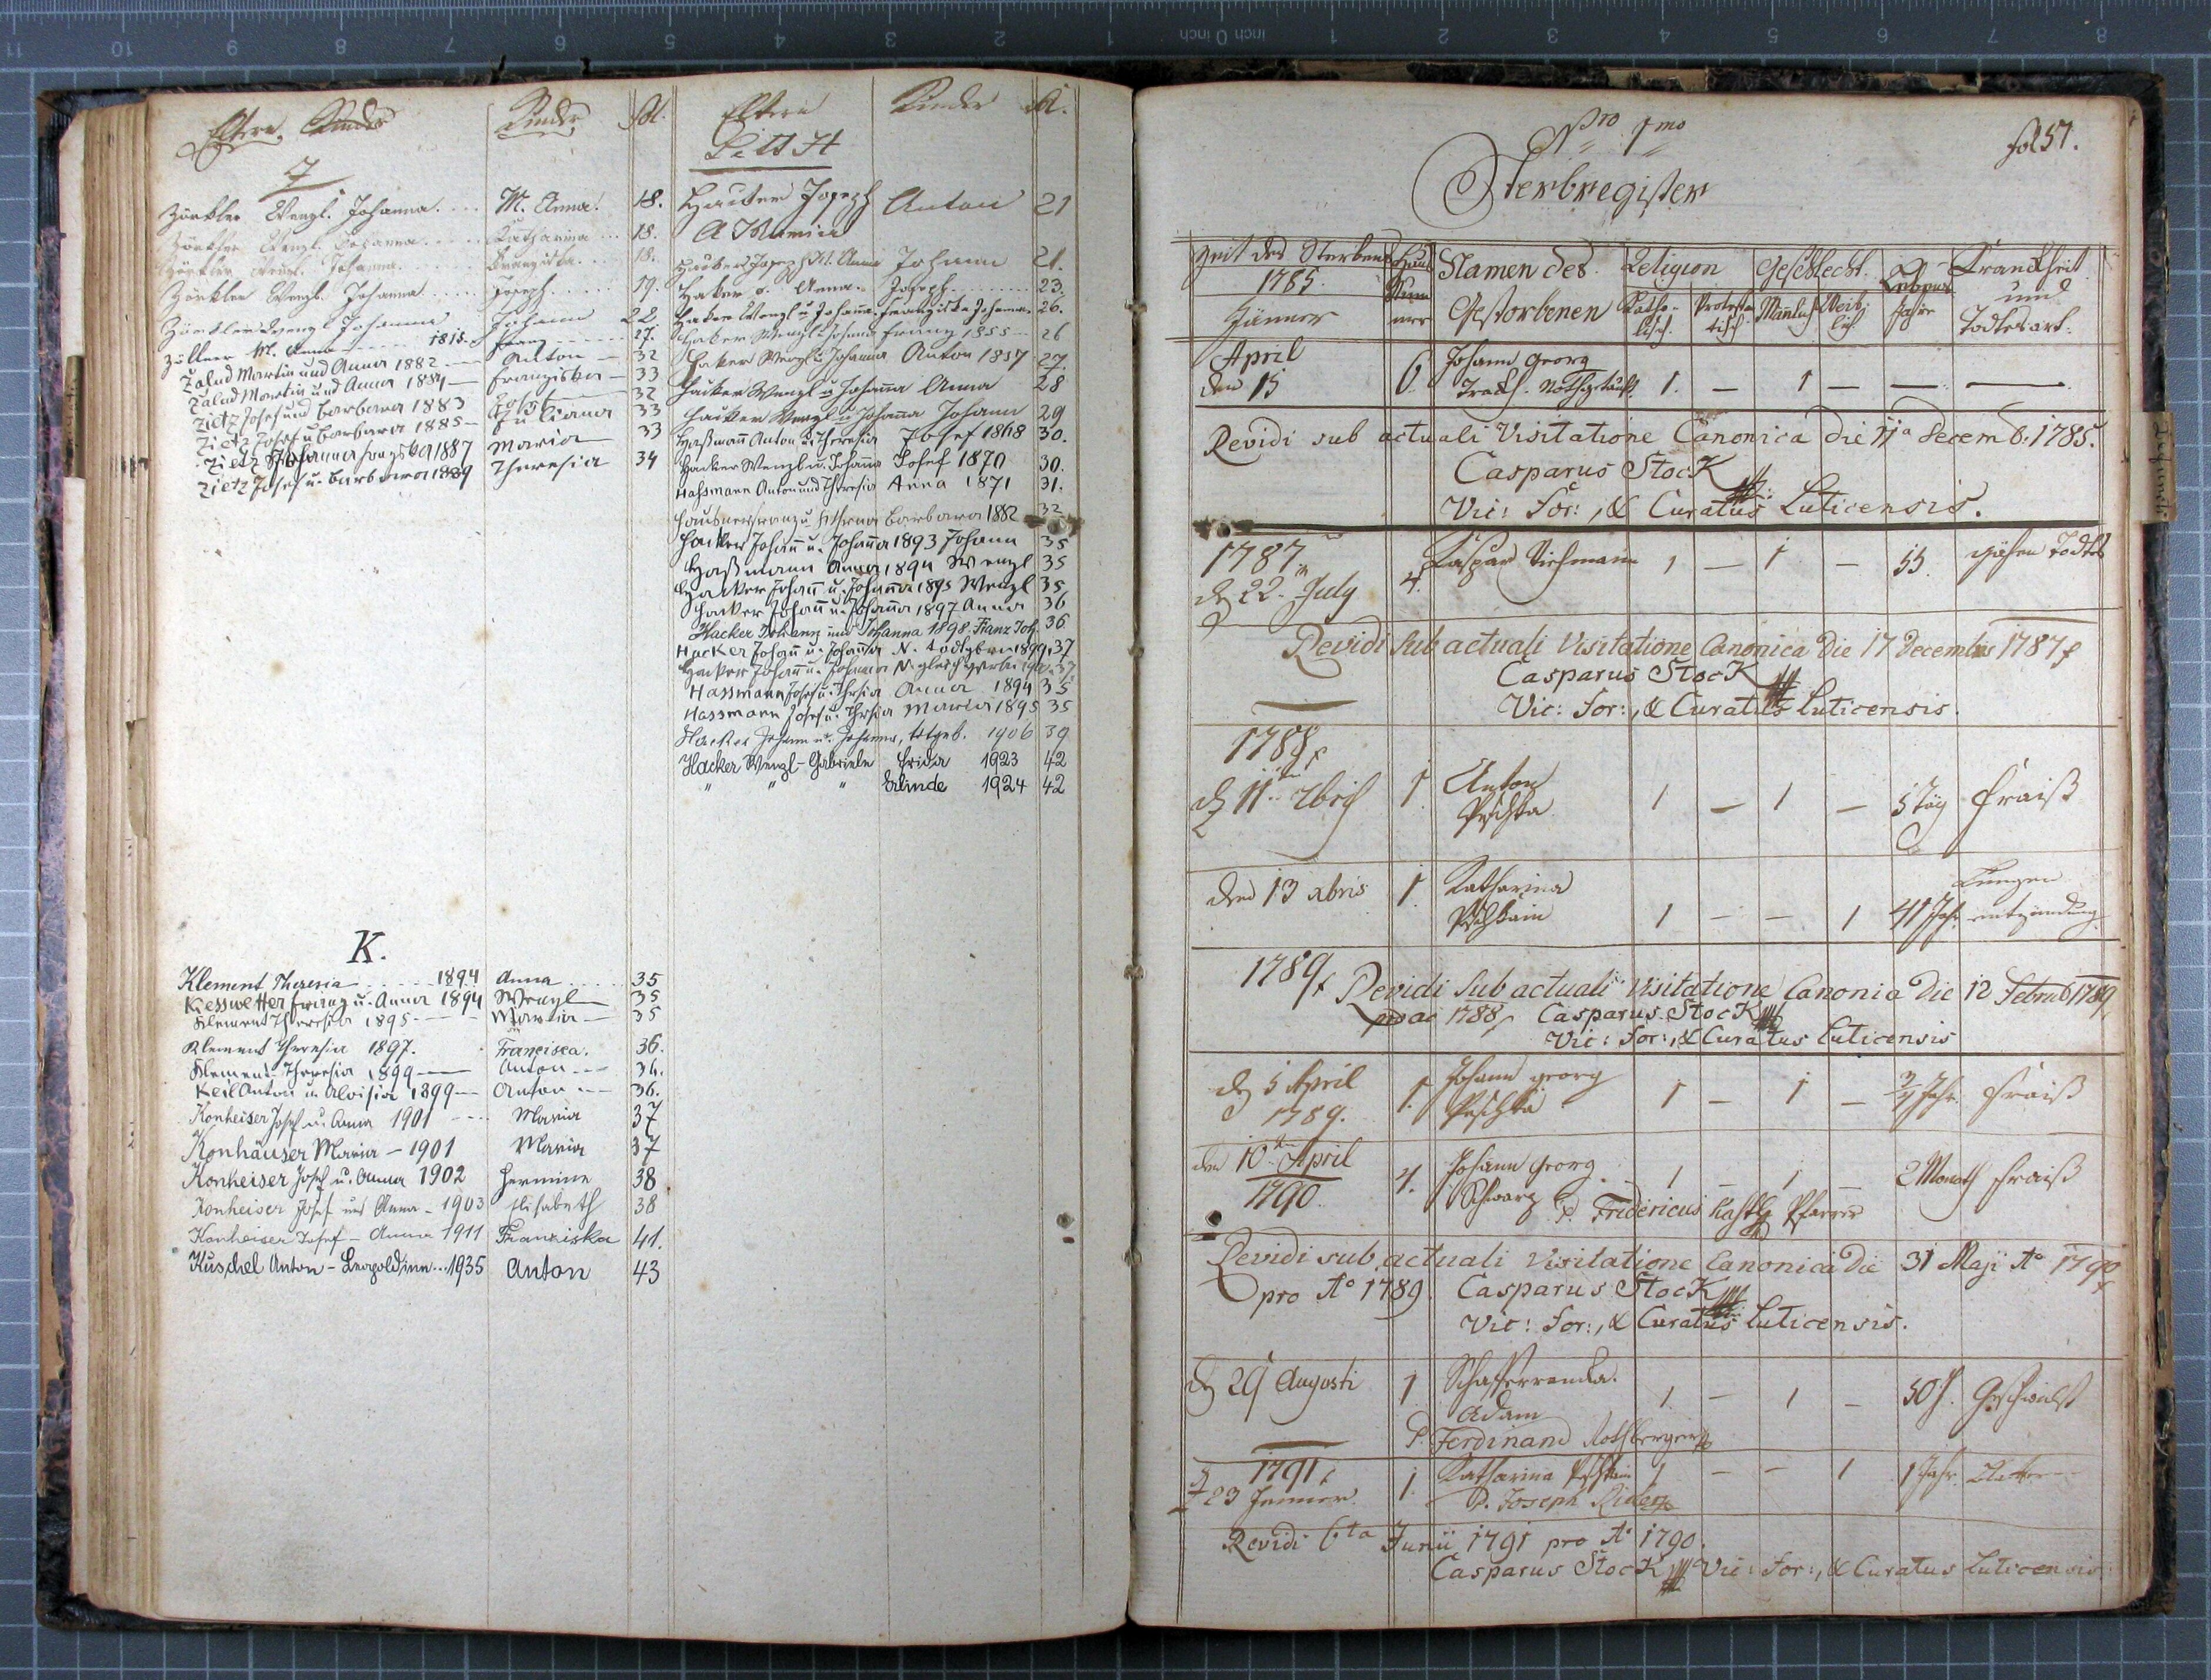 Eltern Kinder
Kinder
fol.
Z
Zörkler Wenzl. Johanna M. Anna. 18.
Zörkler Wenzl. Johanna Katharina 18.
Zörkler Wenzl. Johanna Franziska 18.
Zörkler Wenzl. Johanna Joseph 19.
Zörkler Wenzl Johanna Johann 22
Zöllner M. Anna 1815 Franz 27.
Zalud Martin und Anna 1882 Anton 32
Zalud Martin und Anna 1884 Franziska 33
Zietz Josef und Barbara 1883 32
Zietz Josef u Barbara 1885 Juliana 33
Zietz 1887 Maria 33
Zietz Josef u. Barbara 1889 Theresia 34
K.
Klement Theresia 1894 Anna 35
Kesswetter Franz u. Anna 1894 Wenzl 35
Klement Theresia 1895 Maria 35
Klement Theresia 1897. Francisca. 36.
Klement Theresia 1899 Anton 36.
Keil Anton u. Aloisia 1899 Anton 36.
Konheiser Josef u. Anna 1901 Maria 37
Konhäuser Maria – 1901 Maria 37
Konheiser Josef u. Anna 1902 Hermine 38
Konheiser Josef und Anna – 1903 Elisabeth 38
Konheiser Josef – Anna 1911 Franziska 41.
Kuschel Anton – Leopoldine...1935 Anton 43
Eltern Kinder fol.
Litt H
Joseph Anton 21
A Maria
Joseph Anna Johann 21.
Haker Anna Joseph 23.
Haker Wenzl u Johanna Franziska Johanna 26.
Haker Wenzl Johanna Franz 1855 26
Haker Wenzl u Johanna Anton 1857 27.
Hacker Wenzl u Johanna Anna 28
Hacker Wenzl u Johanna Johann 29
Haßmann Anton u. Theresia Josef 1868 30.
Hacker Wenzl u. Johanna Josef 1870 30.
Hassmann Anton und Theresia Anna 1871 31.
Hausner Franz u. Barbara 1882 32
Hacker Johann u. Johanna 1893 Johann 35
Haßmann Anna 1894 Wenzl 35
Hacker Johann u. Johanna 1895 Wenzl 35
Hacker Johann u. Johanna 1897 Anna 36
Hacker und Johanna 1898 Franz Joh. 36
Hacker Johann u. Johanna N. todtgebor 1899. 37
Hacker Johann u. Johanna N. gleich 37
Hassmann Josef u. Thrsia Anna 1894 35
Hassmann Josef u. Thrsia Maria 1895 35
Hacker Johann u. Johanna, totgeb. 1906 39
Hacker Wenzl – Gabriele Frida 1923 42
" " " Erlinde 1924 42
Nro 1mo
fol 57.
Sterbregister
Zeit des Sterbens 1785. Jänner
Haus Num mer
Namen des Gestorbenen
Religion Katho- lisch. Protestan- tisch
Geschlecht. Mänlich Weib- lich
Lebens Jahre
Krankheit und Todtesart.
April den 15 6. Johann Georg Nothgetauft. 1. — 1 — — —
Revidi sub actuali Visitatione Canonica die 11a Decemb: 1785.
Casparus Stock
Vic: For:, & Curatus Luticensis.
1787 d 22. July 4. Kaspar 1 — 1 — 55. gähen Todtes
Revidi sub actuali Visitatione Canonica Die 17 Decembris 1787
Casparus Stock
Vic: For:, & Curatus Luticensis.
1788
d 11 1 Anton Peschka 1 — 1 — 5 Täg Fraiß
den 13 xbris 1 Katharina Peschkain 1 — — 1 41 Jahr. Lungen entzündung
1789 Revidi sub actuali Visitatione Canonia Die 12 Febru 1789
pro ao 1788 Casparus Stock
Vic: For:, & Curatus Luticensis
d 5 April 1789. 1. Johann georg Peschka 1 — 1 — 3/4 Jahr. Fraiß
den 10 April 1790. 4. Johann Georg Schwarz 1 — 1 — 2 Monath Fraiß
P. Fridericus Kastl Pfarrer
Revidi sub actuali Visitatione Canonica Die 31 Maji Ao 1790
pro Ao 1789. Casparus Stock
Vic: For:, & Curatus Luticensis.
d 29 Augusti 1 Adam 1 — 1 — 50 J. Geschwulst
P. Ferdinand Rothberger
1791
d 23 Jenner 1. Katharina Peschkain 1 — — 1 1 Jahr.
P. Joseph
Revidi 6ta Junii 1791 pro Ao 1790.
Casparus Stock Vic: For:, & Curatus Luticensis.
11 10 9 8 7 6 5 4 3 2 1 inch 0 inch 1 2 3 4 5 6 7 8